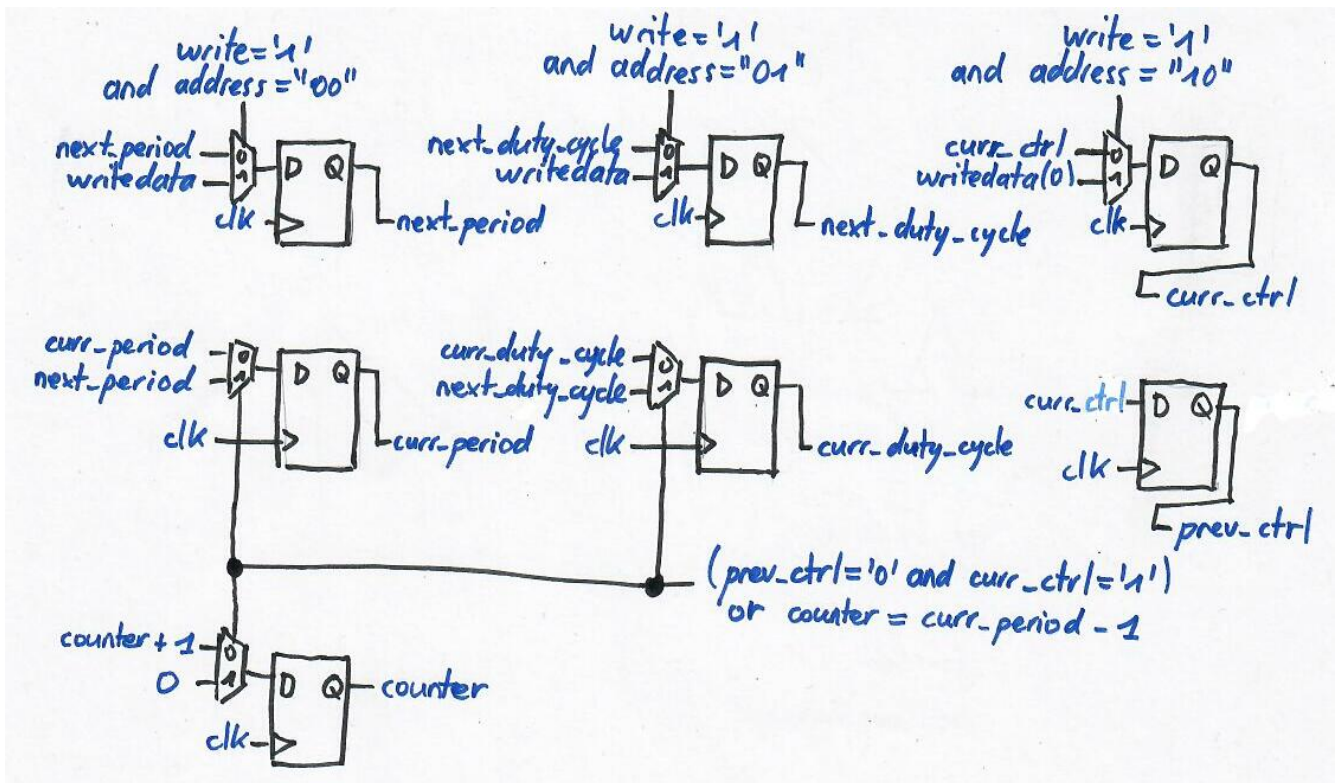 write='1'
and address="00"
next_period
writedata
0
1
D Q
clk
next_period
write='1'
and address="01"
next_duty_cycle
writedata
0
1
D Q
clk
next_duty_cycle
write='1'
and address="10"
curr_ctrl
writedata(0)
0
1
D Q
clk
curr_ctrl
curr_period
next_period
0
1
D Q
clk
curr_period
curr_duty_cycle
next_duty_cycle
0
1
D Q
clk
curr_duty_cycle
curr_ctrl
D Q
clk
prev_ctrl
(prev_ctrl='0' and curr_ctrl='1')
or counter = curr_period - 1
counter + 1
0
0
1
D Q
counter
clk